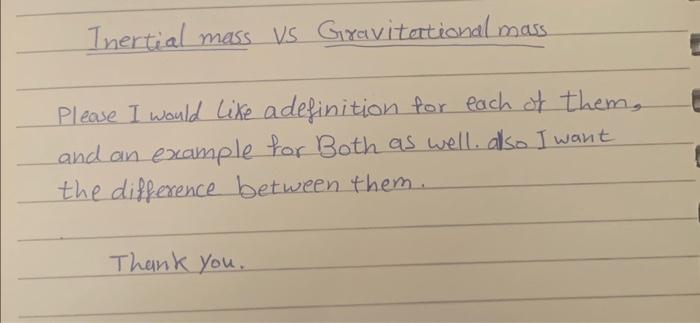 Inertial mass VS Gravitational mass
Please I would like a definition for each of them,
and an example for Both as well. also I want
the difference between them.
Thank you.